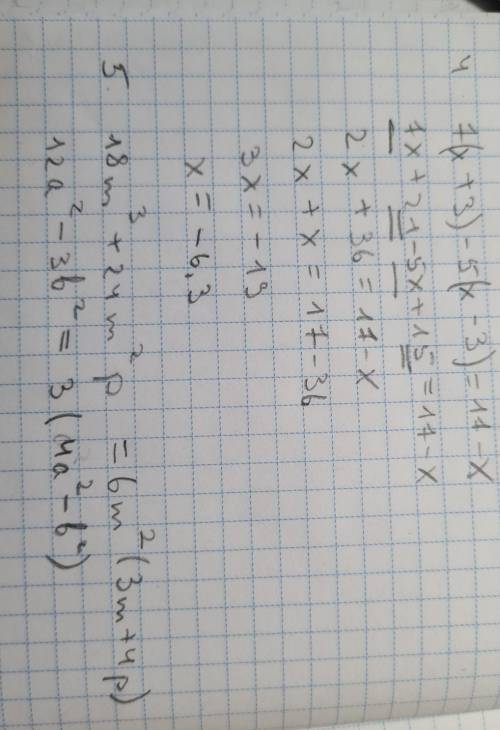 4
7(x+3)-5(x-3)=17-x
7x+21-5x+15=17-x
2x+36=17-x
2x+x=17-36
3x=-19
x=-6,3
5. 18m³+24m²p=6m²(3m+4p)
12a²-3b²=3(4a²-b²)